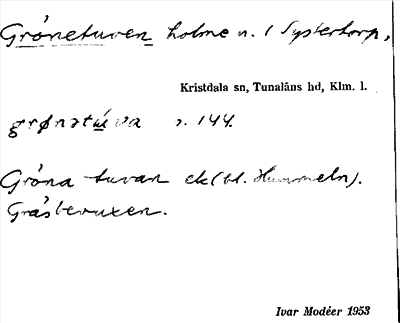 Grönetuven holme n. i Systertorp,
Kristdala sn, Tunaläns hd, Klm. l.
grønətu̇va s. 144.
Gröna tuvan ek (bl. Hummeln).
Gräsbevuxen.
Ivar Modéer 1953